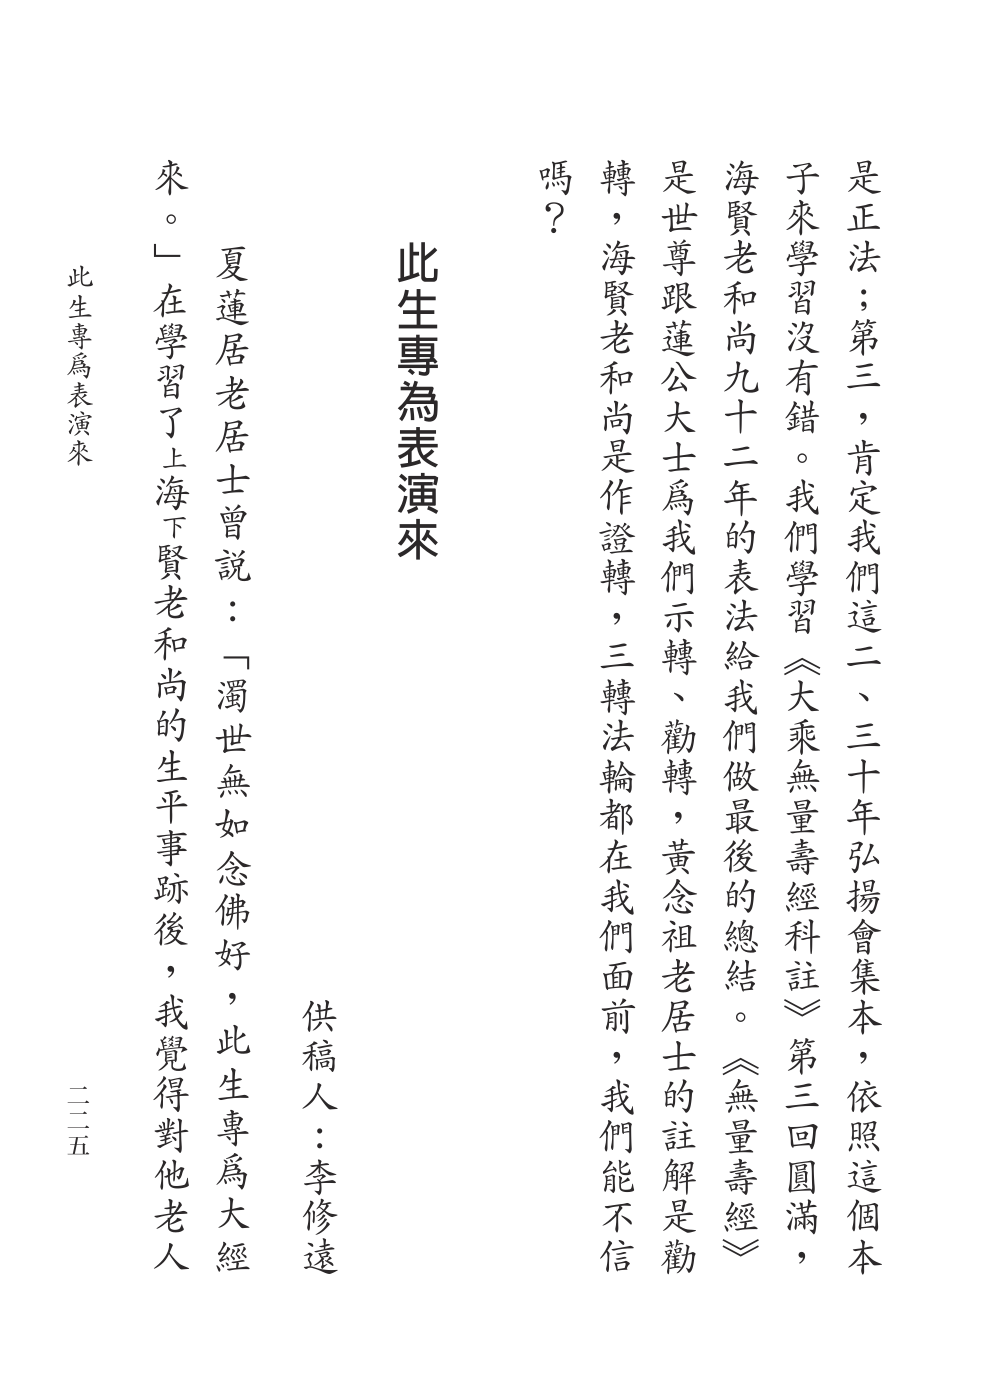 是正法；第三，肯定我們這二、三十年弘揚會集本，依照這個本
子來學習沒有錯。我們學習《大乘無量壽經科註》第三回圓滿，
海賢老和尚九十二年的表法給我們做最後的總結。《無量壽經》
是世尊跟蓮公大士爲我們示轉、勸轉，黃念祖老居士的註解是勸
轉，海賢老和尚是作證轉，三轉法輪都在我們面前，我們能不信
嗎？
此生專為表演來
供稿人：李修遠
夏蓮居老居士曾説：「濁世無如念佛好，此生專爲大經
來。」在學習了上海下賢老和尚的生平事跡後，我覺得對他老人
此生專爲表演來
二二五